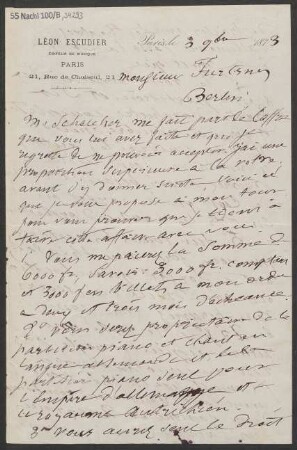 55 Nachl 100/B,
LÉON ESCUDIER
ÉDITEUR DE MUSIQUE
PARIS
21, Rue de Choiseul, 21
Paris, le 3 9bre 1873
Monsieur Fürstner
Berlin
M. Schelcher me fait part de l'offre
que vous lui avez faite et que je
regrette de ne pouvoir accepter. J'ai une
proposition supérieure à la votre
avant d'y donner suite voici ce
que je vous propose à mon tour
pour vous prouver que je tiens à
traiter cette affaire avec vous.
Vous me paierez la somme de
6000 fr. savoir 2000 fr. comptant
et fr en billets à mon ordre
à deux et trois mois d'échéance.
2° Vous serez propriétaire de la
partition piano et chant en
langue allemande et de la
partition piano seul pour
l'empire d'allemagne et
le royaume autrichien.
3° Vous aurez seul le droit